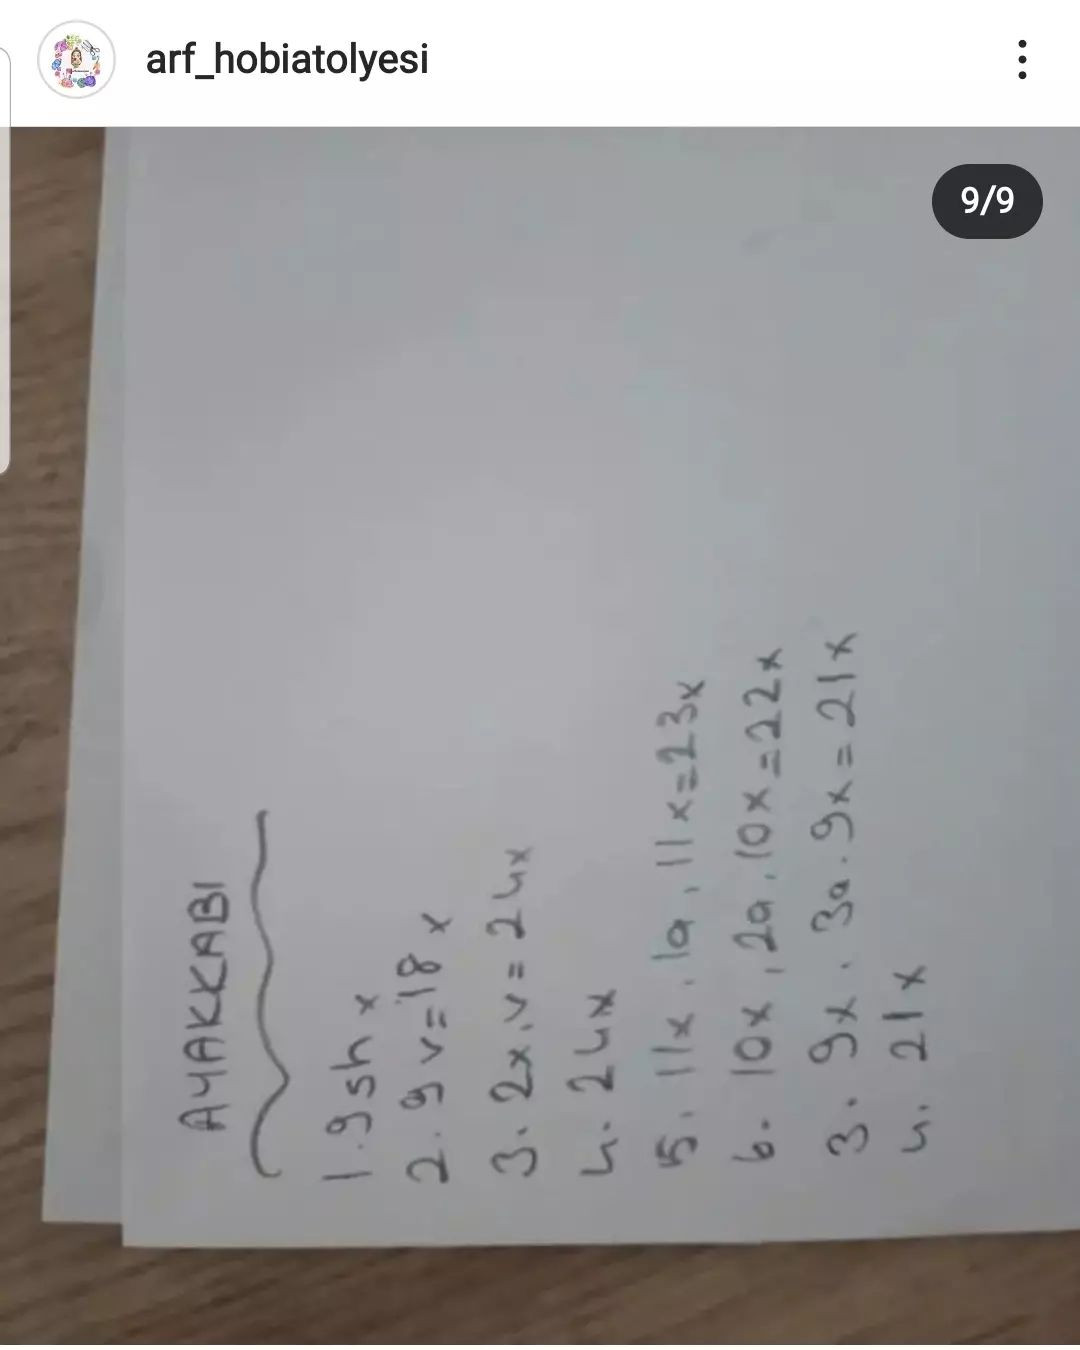 arf_hobiatolyesi
9/9
AYAKKABI
1. 9 sh x
2. 9 v=18 x
3. 2x, v = 24x
4. 24x
5. 11x, 1a, 11x=23x
6. 10x, 2a, 10x=22x
3. 9x, 3a. 9x=21x
4. 21x